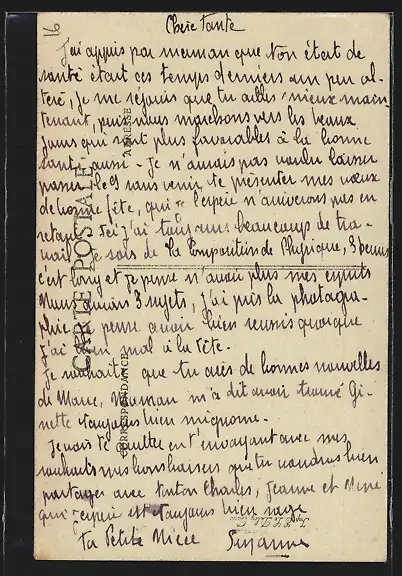 16
Chère Tante
J'ai appris par maman que ton état de
santé était ces temps derniers un peu al-
téré, je me réjouis que tu ailles mieux main
tenant, puis nous marchons vers les beaux
jours qui sont plus favorables à la bonne
santé aussi - Je n'aurais pas voulu laisser
passer le 9 sans venir te présenter mes vœux
de bonne fête, qui j'espère n'arriveront pas en
retard. Ici j'ai toujours beaucoup de tra-
vail je sors de la Composition de Physique, 3 heures
c'est long et je pense n'avoir plus mes esprits
Nous avions 3 sujets, j'ai pris la photogra-
phie je pense avoir bien réussi quoique
j'ai un mal à la tête.
Je souhaite que tu aies de bonnes nouvelles
de Marc, Maman m'a dit avoir trouvé Gi-
nette toujours bien mignonne.
Je vais te quitter en t'envoyant avec mes
souhaits mes bons baisers que tu voudras bien
partager avec tonton Charles, Jeanne et Mimi
qui j'espère est toujours bien sage
ta Petite Nièce Suzanne
CARTE POSTALE
CORRESPONDANCE
ADRESSE